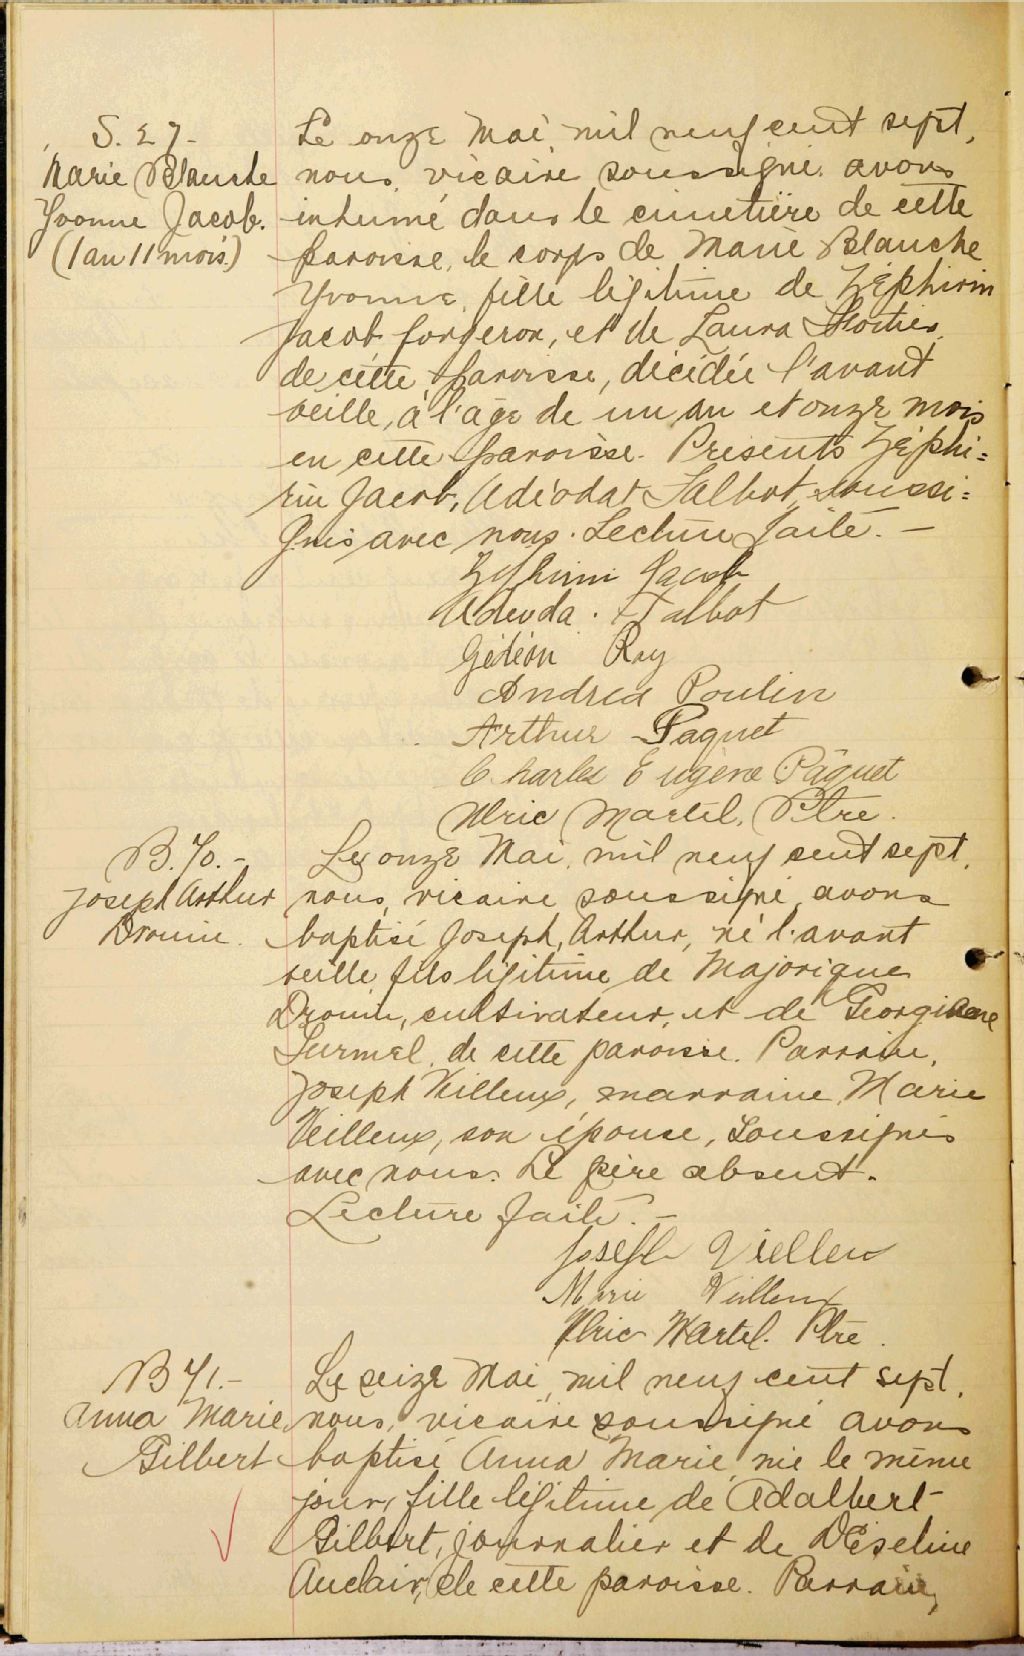 S. 27-
Marie Blanche
Yvonne Jacob.
(1 an 11 mois)
Le onze Mai, mil neuf cent sept,
nous, vicaire soussigné, avons
inhumé dans le cimetière de cette
paroisse, le corps de Marie Blanche
Yvonne, fille légitime de Zéphirin
Jacob forgeron, et de Laura
de cette paroisse, décédée l'avant
veille, à l'âge de un an et onze mois
en cette paroisse. Présents Zéphi=
rin Jacob, Adéodat Talbot, soussi=
gnés avec nous. Lecture faite. -
Zéphirin Jacob
Adeoda. Talbot
Gédéon Roy
Andrea Poulin
Arthur Paquet
Charles Eugène Pâquet
Ulric Martel, Ptre.
B. 70.-
Joseph Arthur
Drouin.
Le onze Mai, mil neuf cent sept,
nous, vicaire soussigné, avons
baptisé Joseph, Arthur, né l'avant
veille, fils légitime de Majorique
Drouin, cultivateur, et de Georgianne
Lurmel, de cette paroisse. Parrain,
Joseph Veilleux, marraine, Marie
Veilleux, son épouse, soussignés
avec nous. Le père absent.
Lecture faite. -
Joseph Vielleu
Marie Veilleux
Ulric Martel. Ptre.
B 71.-
Anna Marie
Gilbert
Le seize Mai, mil neuf cent sept,
nous, vicaire soussigné avons
baptisé Anna Marie, née le même
jour, fille légitime de Adalbert
Gilbert, journalier et de Déseline
Auclair, de cette paroisse. Parrain,